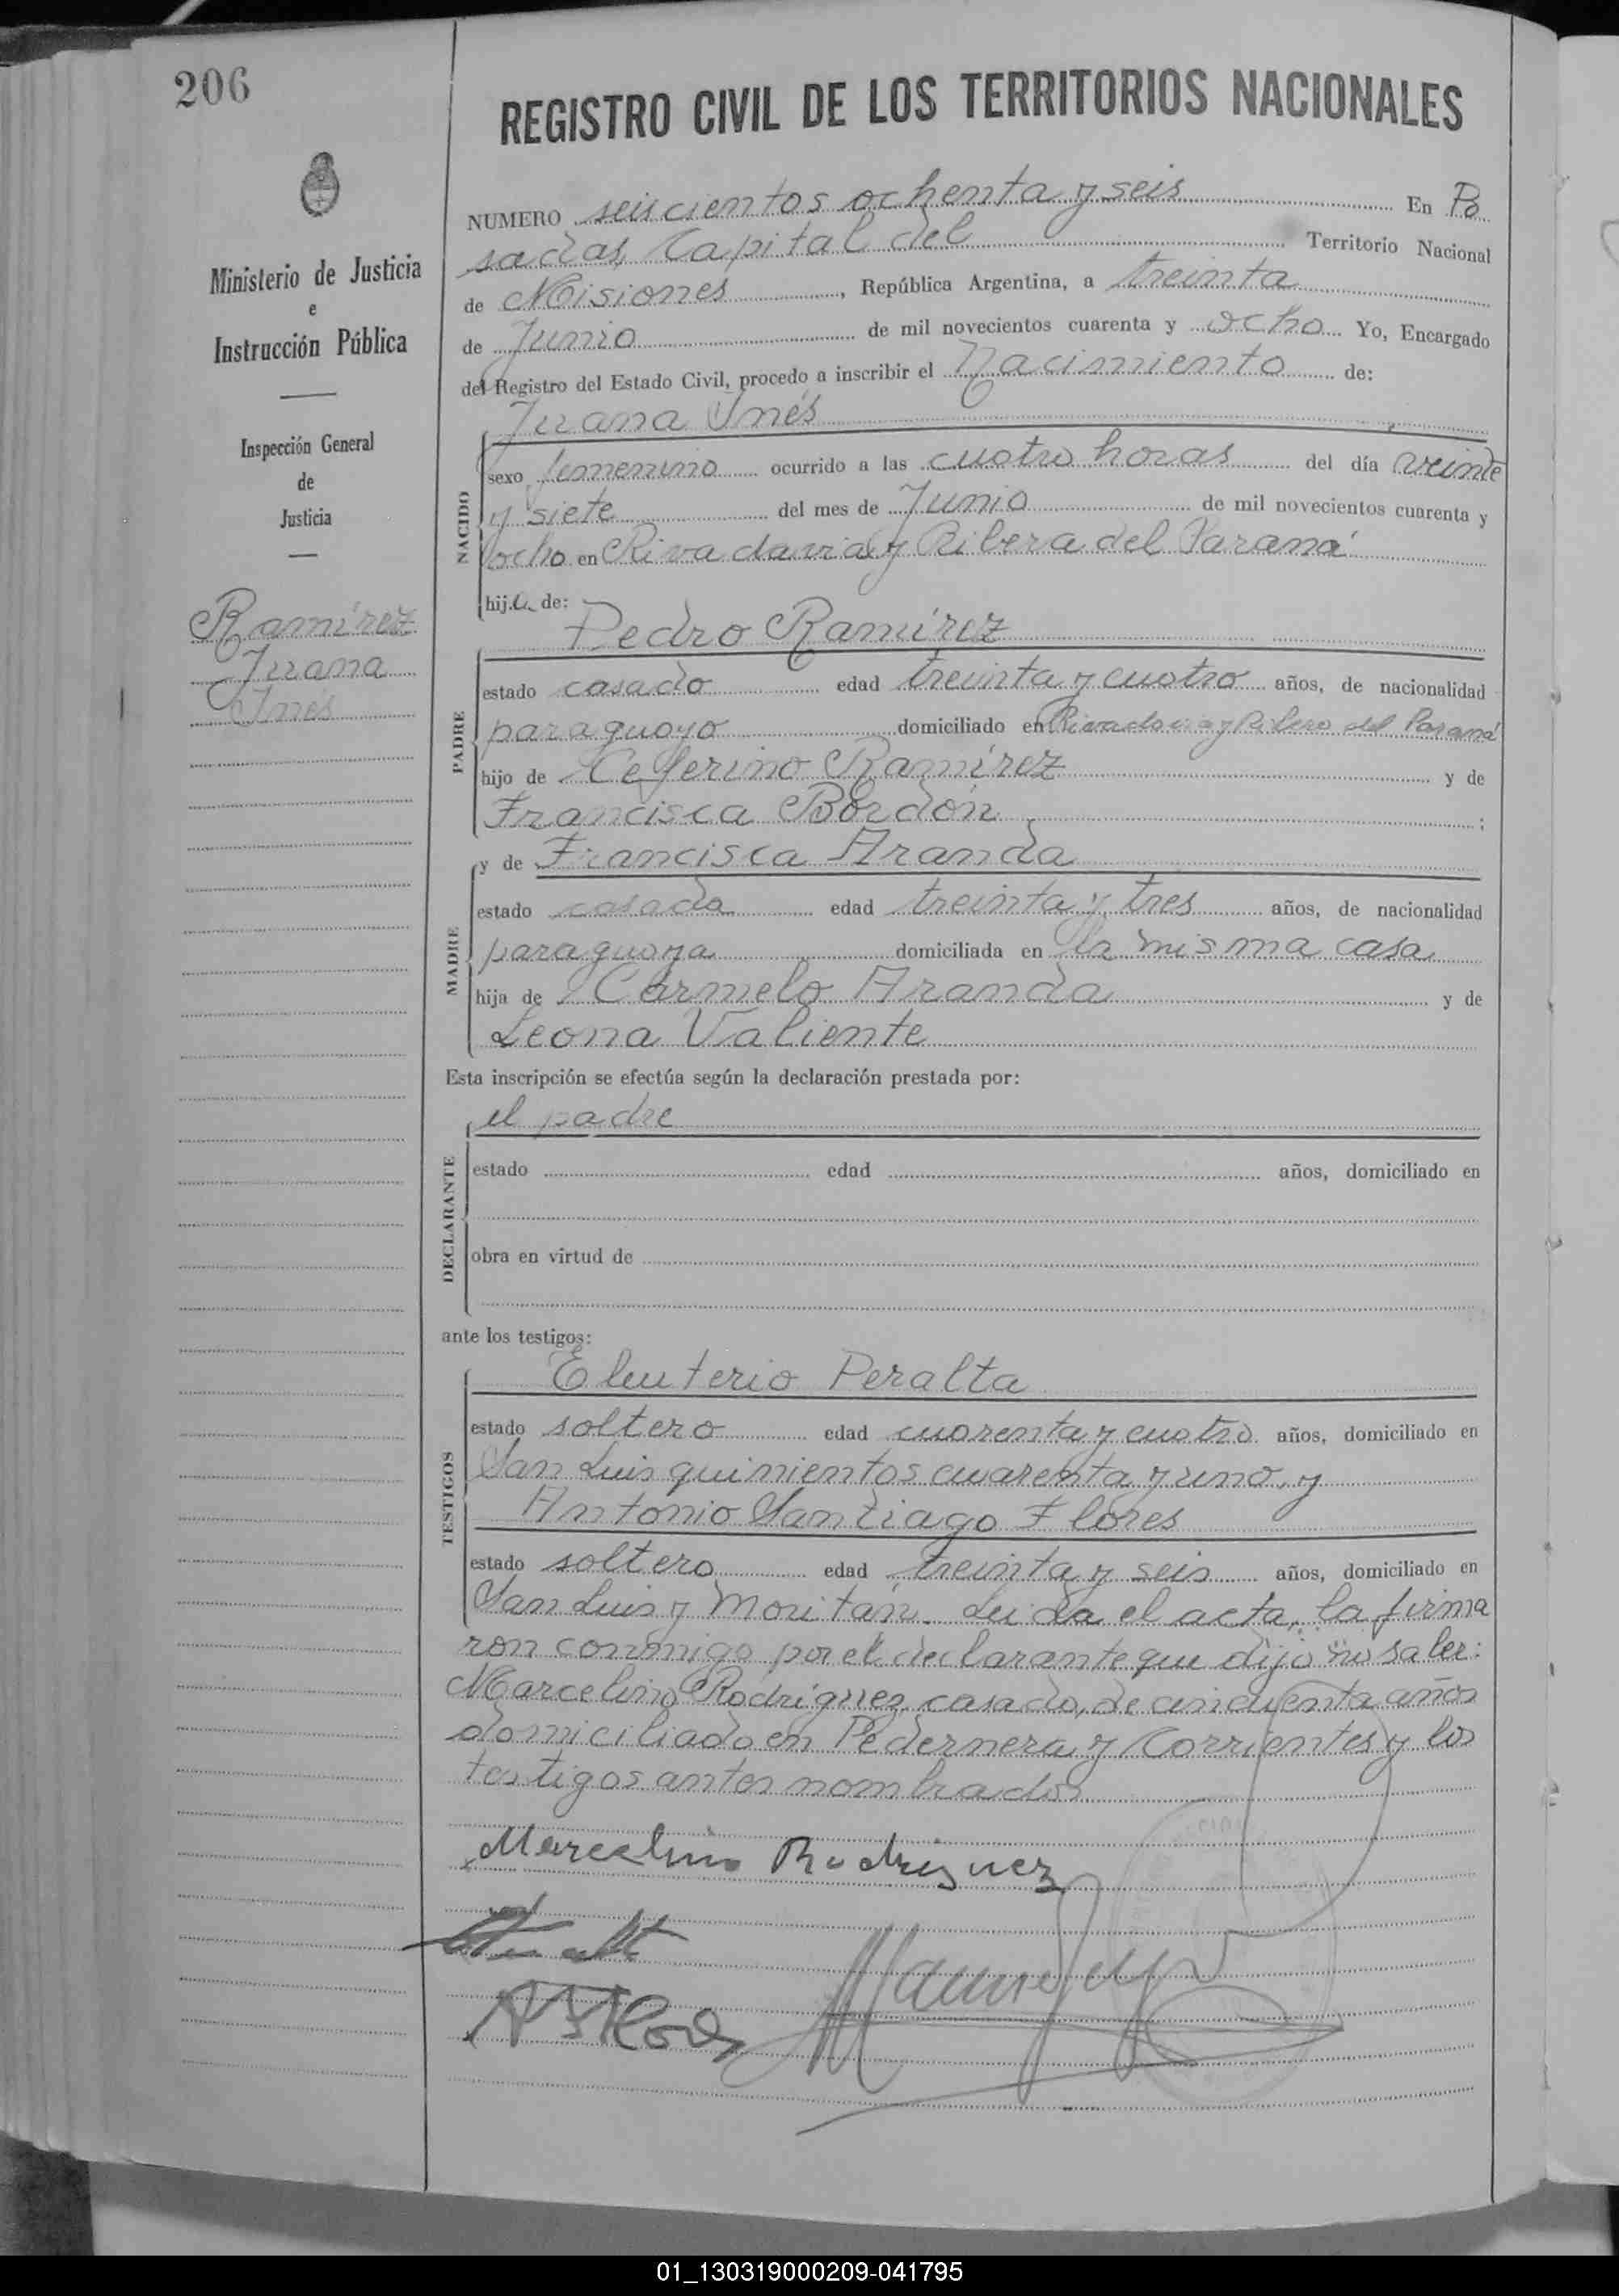 206
REGISTRO CIVIL DE LOS TERRITORIOS NACIONALES
Ministerio de Justicia
e
Instrucción Pública
Inspección General
de
Justicia
Ramírez
Juana
Inés
NUMERO seiscientos ochenta y seis En Po
sadas, Capital del Territorio Nacional
de Misiones, República Argentina, a treinta
de Junio de mil novecientos cuarenta y ocho Yo, Encargado
del Registro del Estado Civil, procedo a inscribir el Nacimiento de:
Juana Inés
NACIDO
sexo femenino ocurrido a las cuatro horas del día veinte
y siete del mes de Junio de mil novecientos cuarenta y
ocho en Rivadavia y Ribera del Paraná
hija de:
Pedro Ramírez
PADRE
estado casado edad treinta y cuatro años, de nacionalidad
paraguayo domiciliado en Rivadavia y Ribera del Paraná
hijo de Ceferino Ramírez y de
Francisca Bordón ;
y de Francisca Aranda
MADRE
estado casada edad treinta y tres años, de nacionalidad
paraguaya domiciliada en la misma casa
hija de Carmelo Aranda y de
Leona Valiente
Esta inscripción se efectúa según la declaración prestada por:
el padre
DECLARANTE
estado edad años, domiciliado en
obra en virtud de
ante los testigos:
Eleuterio Peralta
TESTIGOS
estado soltero edad cuarenta y cuatro años, domiciliado en
San Luis quinientos cuarenta y uno, y
Antonio Santiago Flores
estado soltero edad treinta y seis años, domiciliado en
San Luis y Moritán. Leída el acta, la firma
ron conmigo por el declarante que dijo no saber:
Marcelino Rodríguez, casado, de cincuenta años
domiciliado en Pedernera y Corrientes y los
testigos antes nombrados
Marcelino Rodriguez
A S Flores
01_130319000209-041795